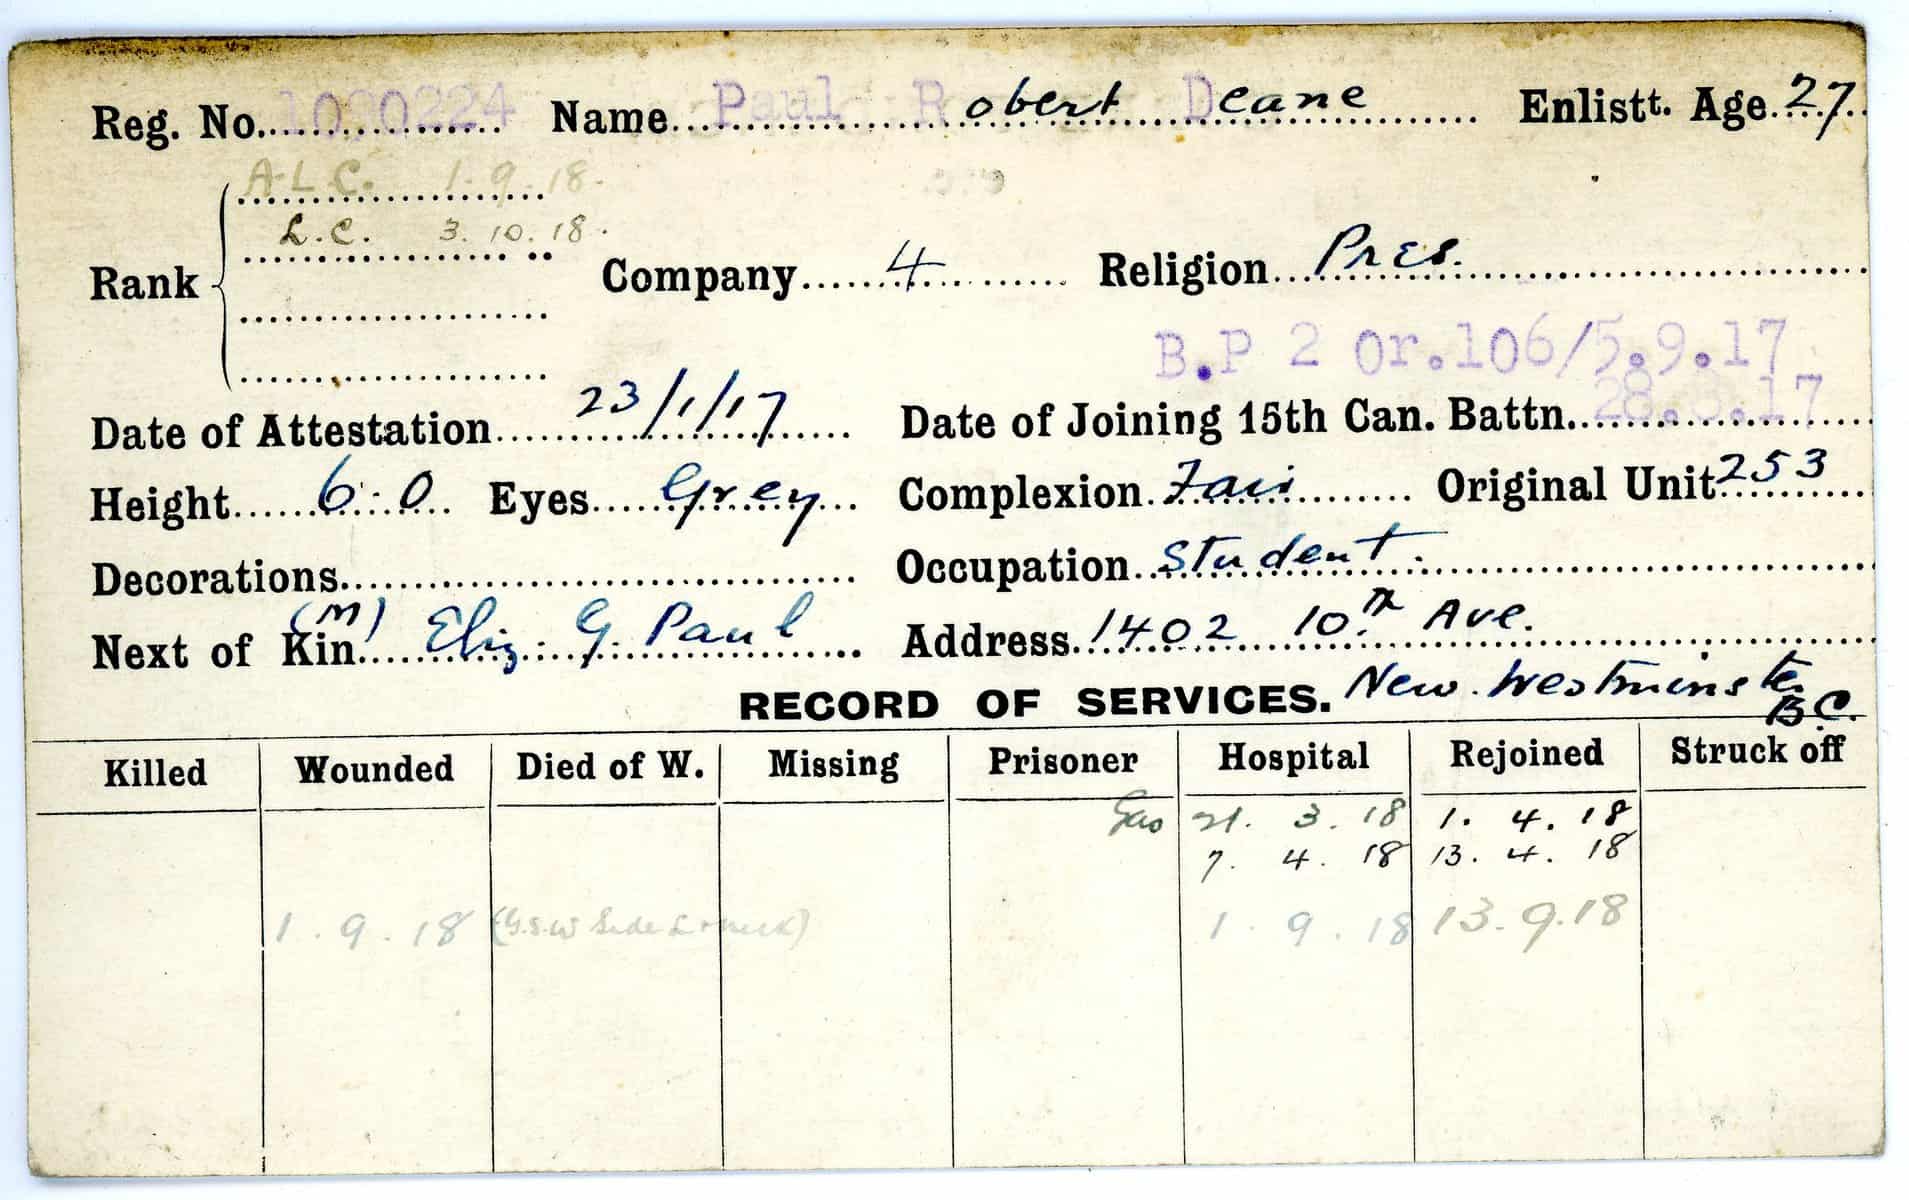 Reg. No. 1090224 Name Paul Robert Deane Enlistt. Age 27
A.L.C. 1.9.18.
L.C. 3.10.18.
Rank Company 4 Religion Pres.
B.P 2 Or.106/5.9.17
Date of Attestation 23/1/17 Date of Joining 15th Can. Battn. 28. .17
Height 6.0 Eyes Grey Complexion Fair Original Unit 253
Decorations Occupation Student.
(M)
Next of Kin Eliz. G. Paul Address 1402 10th Ave.
RECORD OF SERVICES. New Westminster B.C.
Killed Wounded Died of W. Missing Prisoner Hospital Rejoined Struck off
Gas 21. 3. 18 1. 4. 18
7. 4. 18 13. 4. 18
1.9.18 (G.S.W Side L + neck) 1 9.18 13.9.18